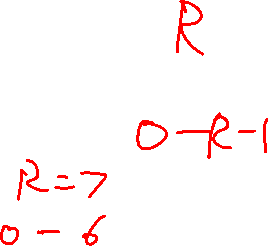 R
0-R-1
R=7
0-6